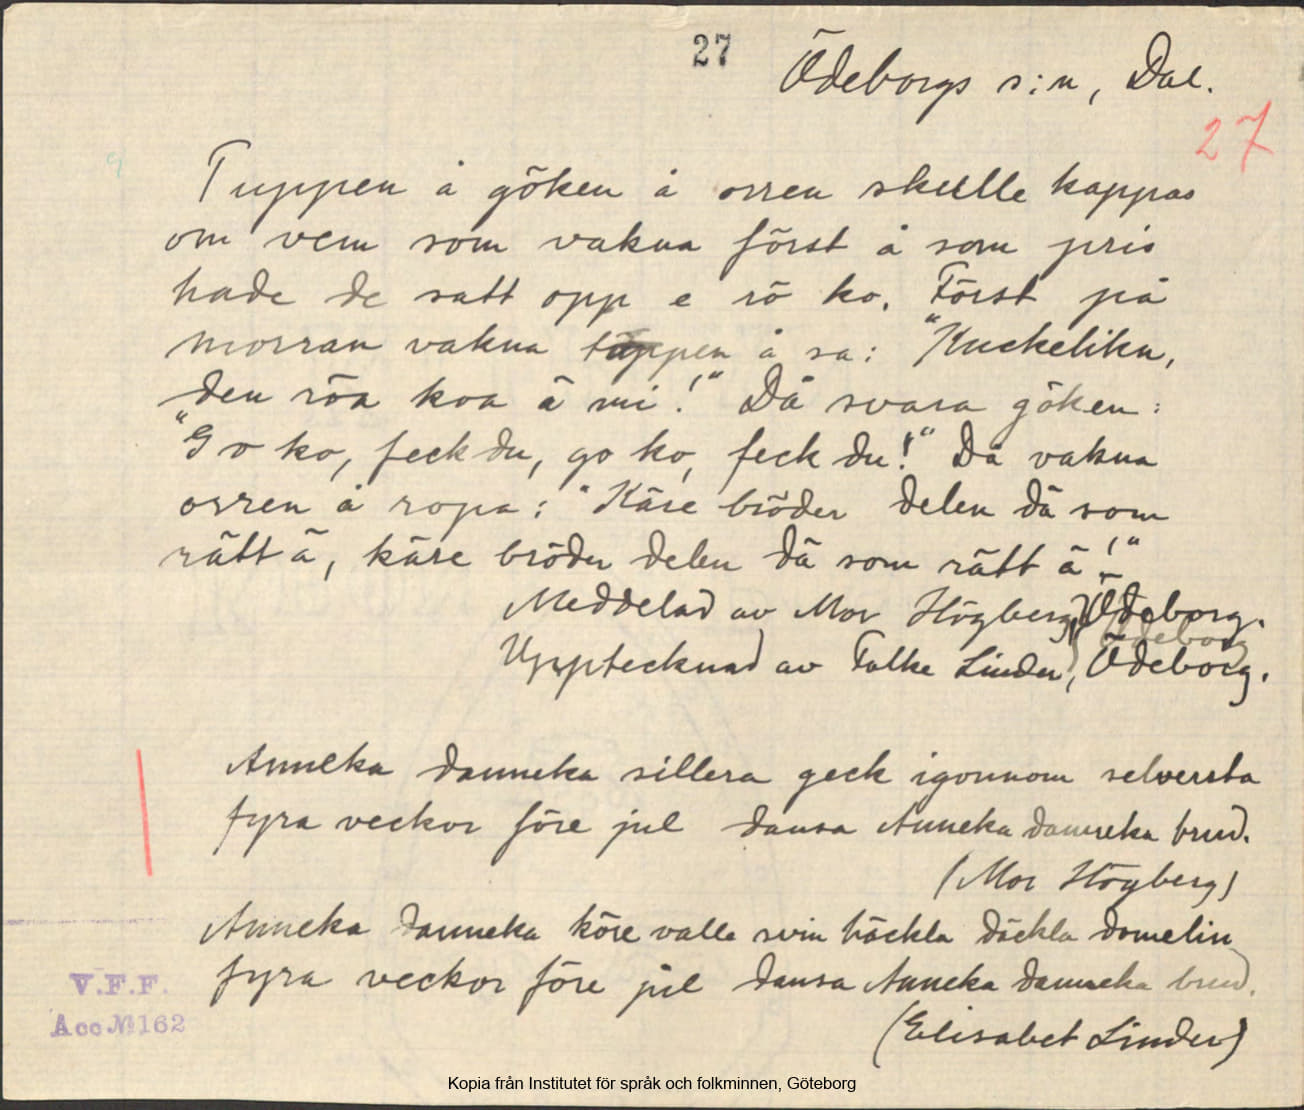 27
Ödeborgs s:n, Dal.
27
Tuppen å göken å orren skulle kappas
om vem som vakna först å som pris
hade de satt opp e rö ko. Först på
morran vakna tuppen å sa: "Kuckeliku,
den röa koa ä mi!" Då svara göken:
"Go ko, feck du, go ko, feck du!" Då vakna
orren å ropa: "Käre bröder delen dä som
rätt ä, käre bröder delen dä som rätt ä!"
Meddelad av Mor Högberg, Ödeborg.
Ödeborg
Upptecknad av Folke Linder, Ödeborg.
Anneka danneka sillera geck igonnom selversta
fyra veckor före jul dansa Anneka danneka brud.
(Mor Högberg)
Anneka danneka köre valle svin häckla däckla domelin
fyra veckor före jul dansa Anneka danneka brud.
(Elisabet Linder)
V.F.F.
Acc № 162
Kopia från Institutet för språk och folkminnen, Göteborg